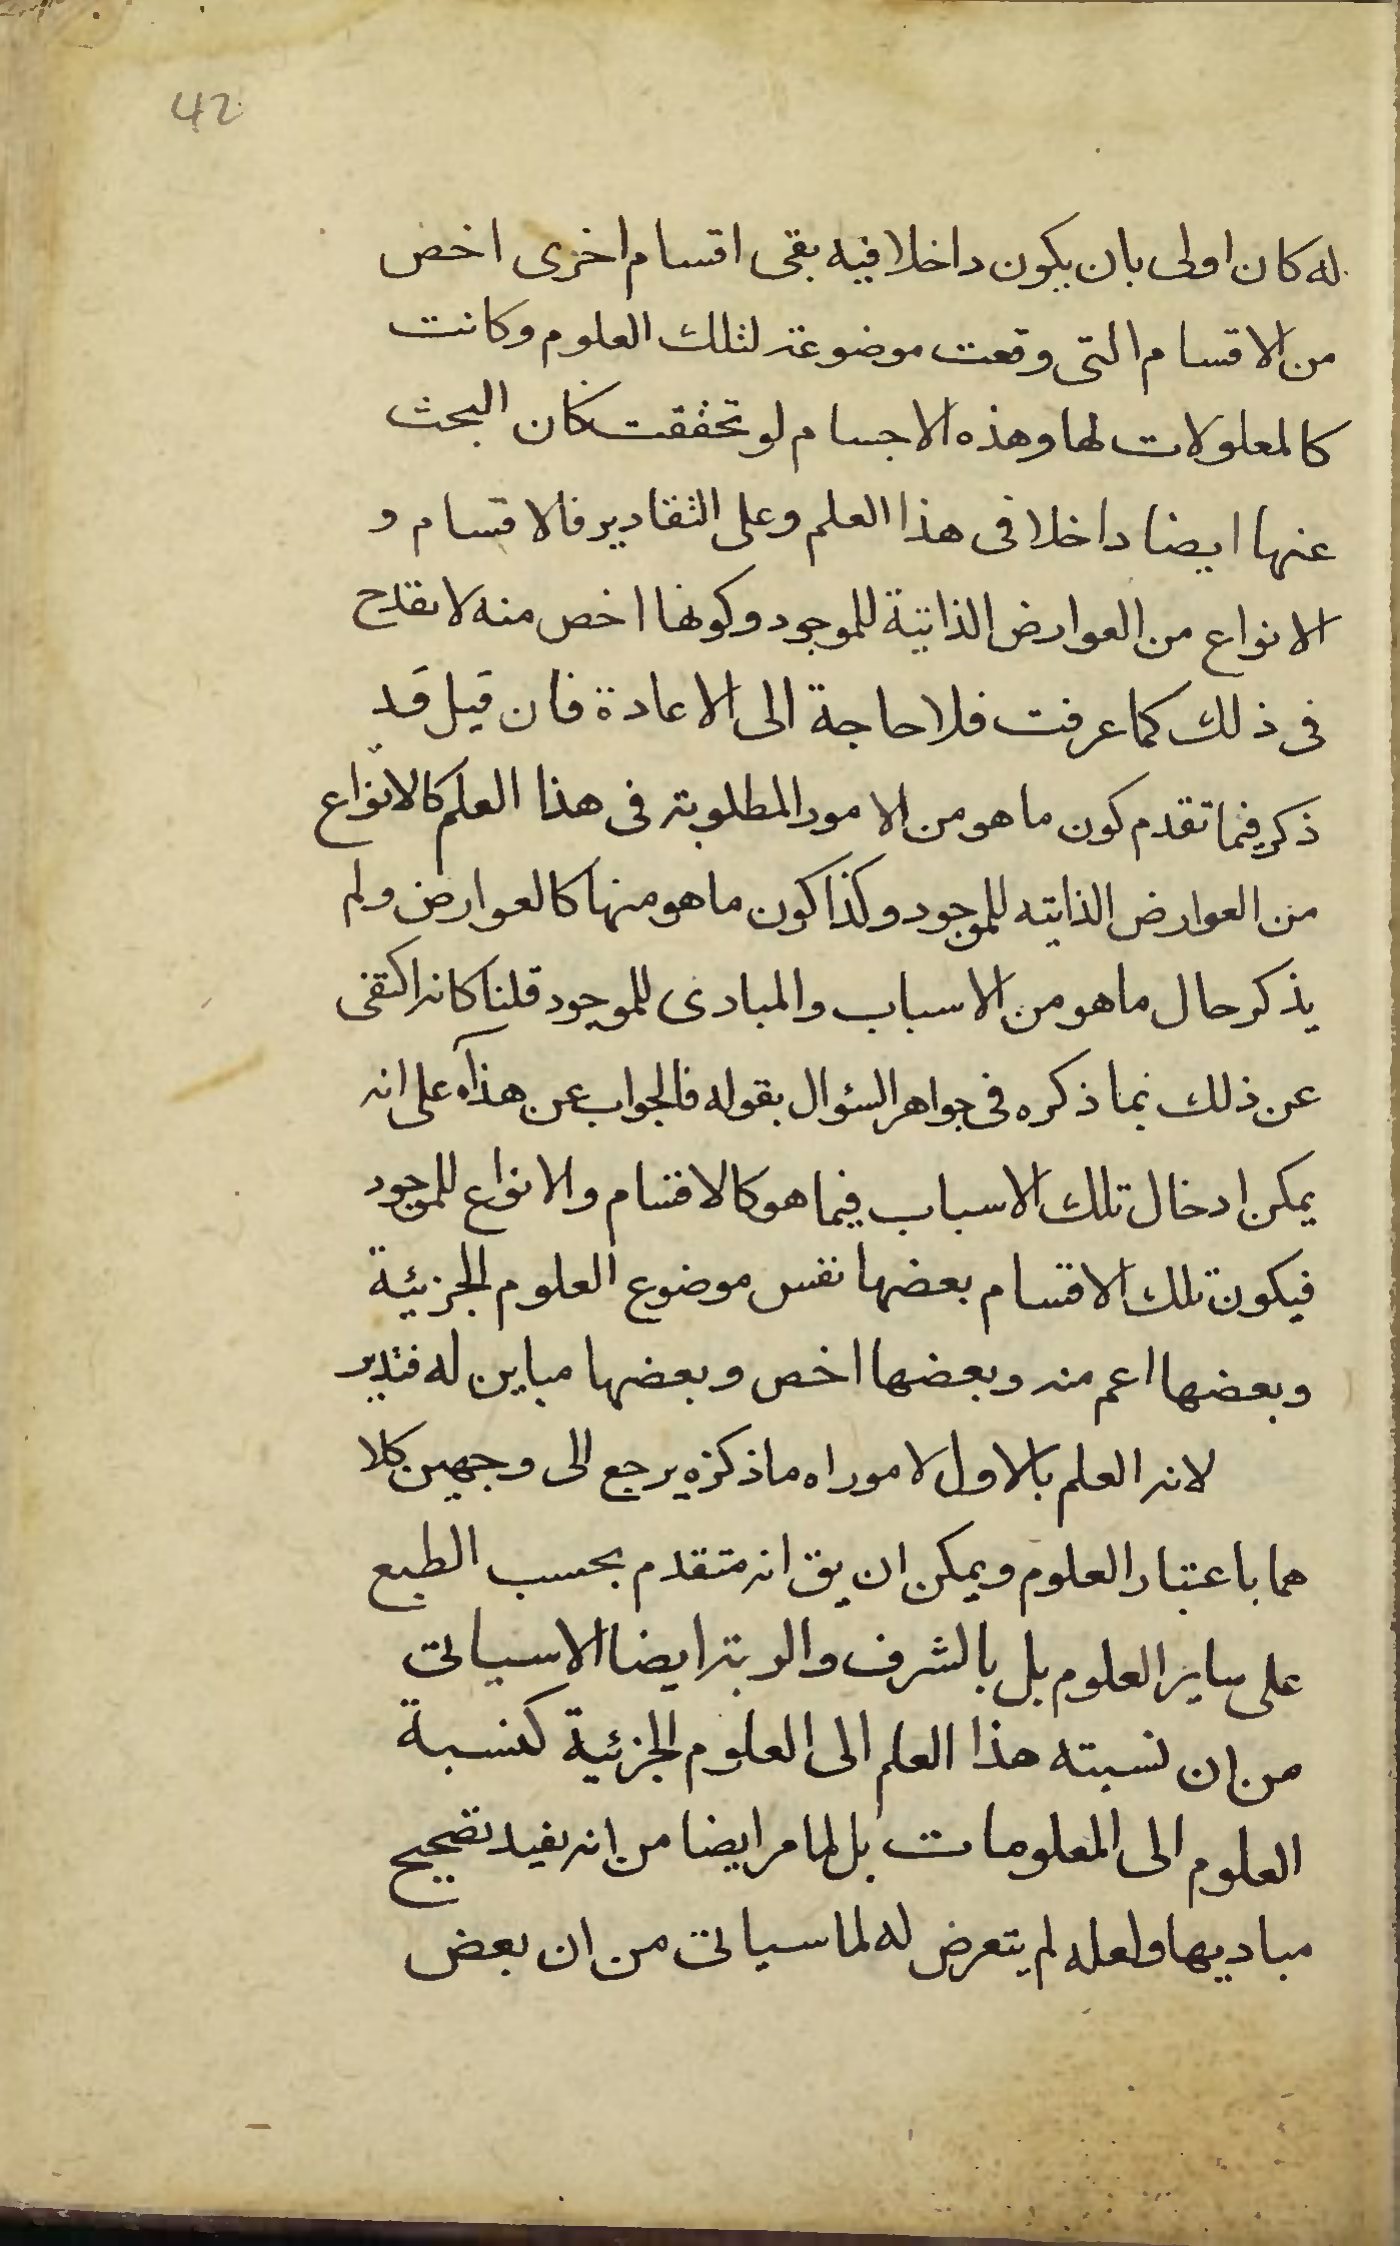 42
له كان اولى بان يكون داخلا فيه بقى اقسام اخرى اخص
من الاقسام التى وقعت موضوعة لتلك العلوم وكانت
كالمعلولات لها وهذه الاجسام لو تحققت كان البحث
عنها ايضا داخلا فى هذا العلم وعلى التقادير فالاقسام و
الانواع من العوارض الذاتية للموجود وكونها اخص منه لا يقدح
فى ذلك كما عرفت فلا حاجة الى الاعادة فان قيل قد
ذكر فيما تقدم كون ما هو من الامور المطلوبة فى هذا العلم كالانواع
من العوارض الذاتيه للموجود وكذا كون ما هو منها كالعوارض ولم
يذكر حال ما هو من الاسباب والمبادى للموجود قلنا كانه اكتفى
عن ذلك بما ذكره فى جواهر السئوال بقوله فالجواب عن هذا آه على انه
يمكن ادخال تلك الاسباب فيما هو كالاقسام والانواع للموجود
فيكون تلك الاقسام بعضها نفس موضوع العلوم الجزئية
وبعضها اعم منه وبعضها اخص وبعضها مباين له فتدبر
لانه العلم بالاول لامور اه ما ذكره يرجع الى وجهين كلا
هما باعتبار العلوم ويمكن ان يق انه متقدم بحسب الطبع
على ساير العلوم بل بالشرف والرتبة ايضا لاسياتى
من ان نسبته هذا العلم الى العلوم الجزئية كنسبة
العلوم الى المعلومات بل لما مر ايضا من انه يفيد تصحيح
مباديها ولعله لم يتعرض له لما سياتى من ان بعض